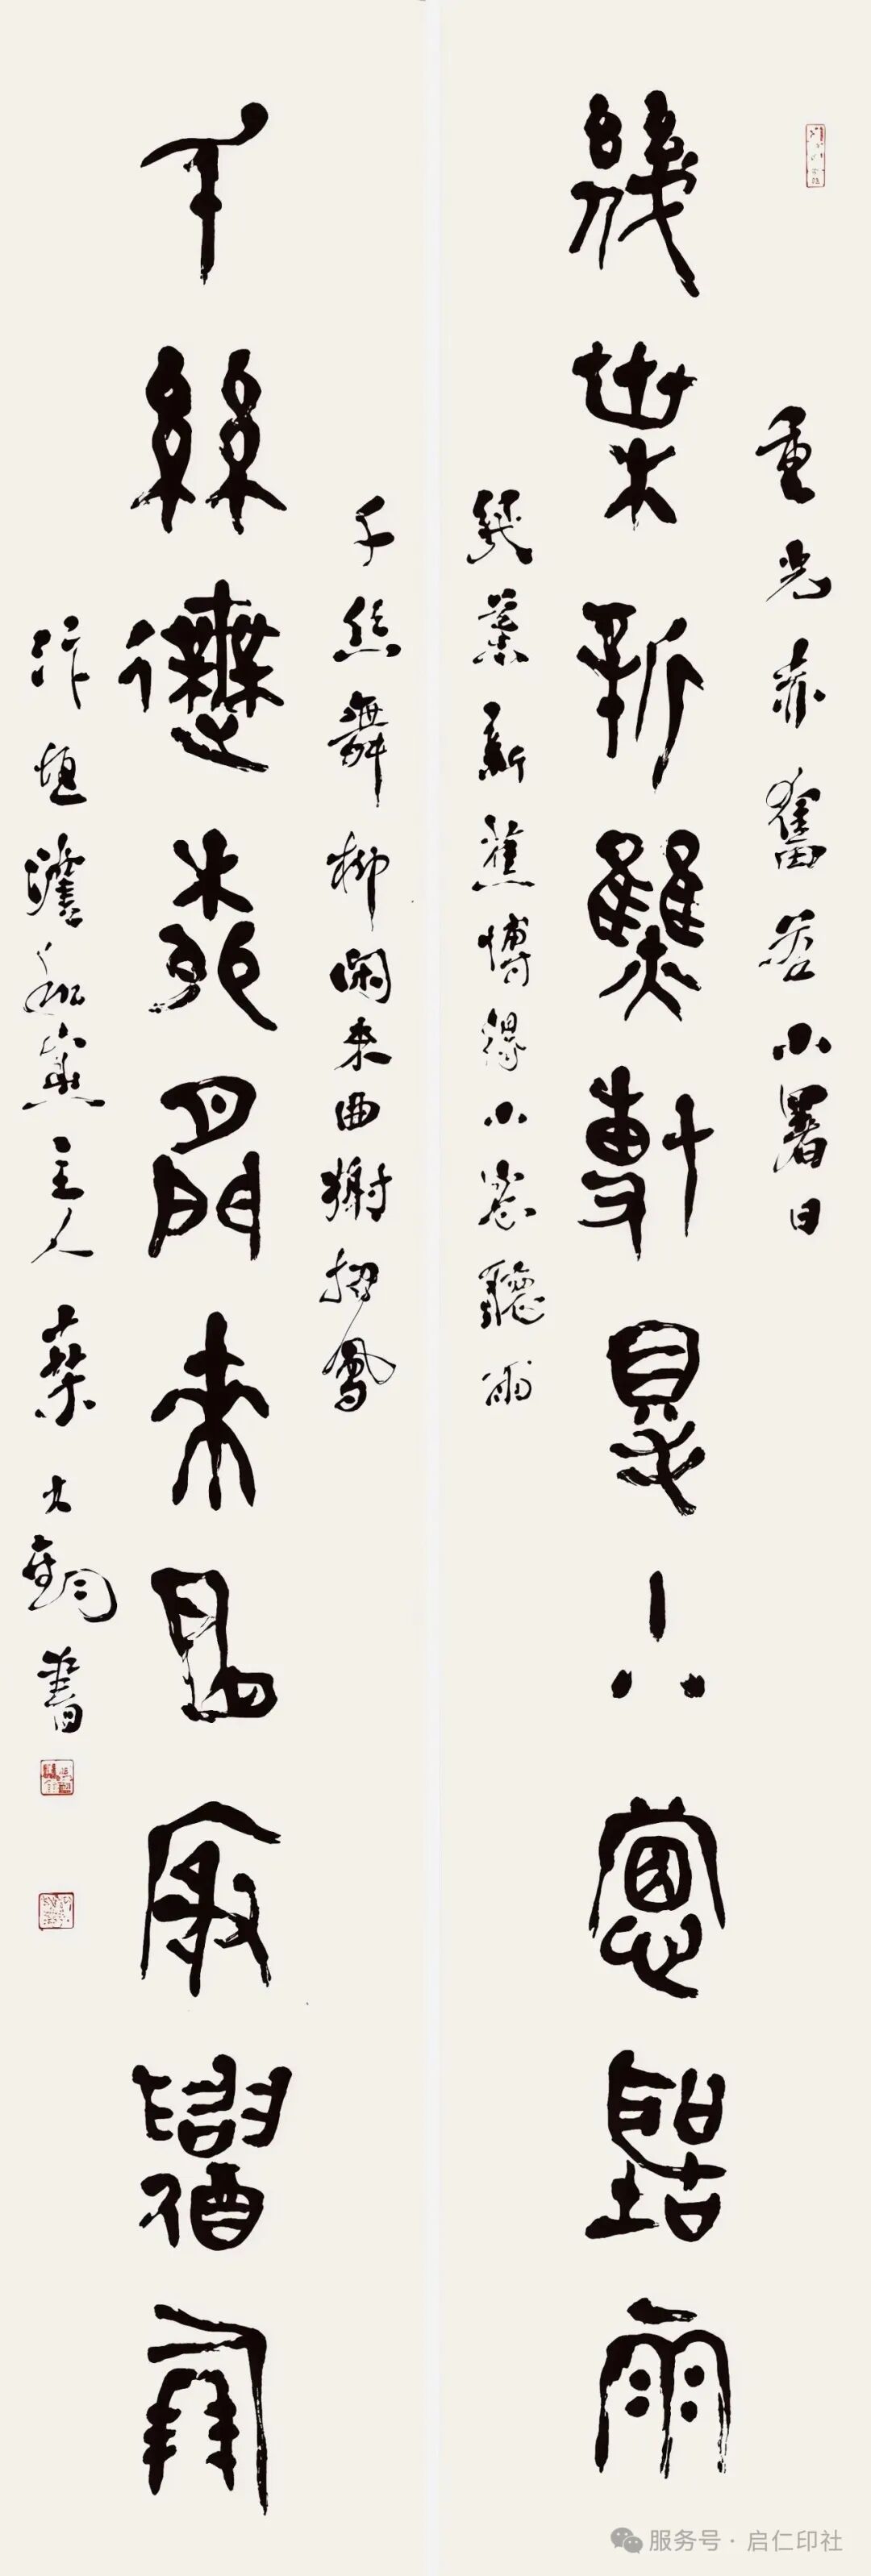 重光赤奮若小暑日
幾葉新蕉博得小窗聽雨
幾葉新蕉博得小窗聽雨
千絲舞柳閑來曲榭招鳳
千絲舞柳閑來曲榭招鳳
汴垣主人葉大書
服务号·启仁印社